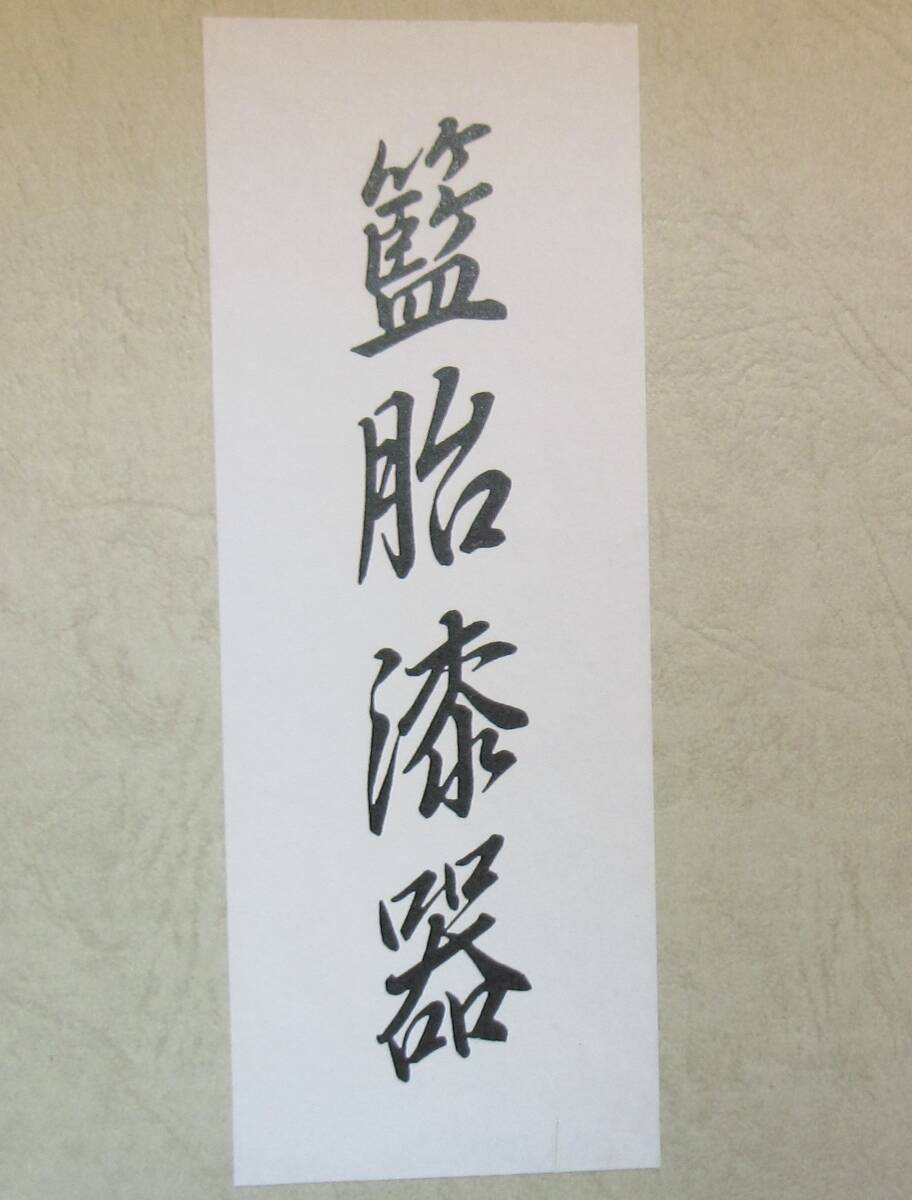 籃胎漆器